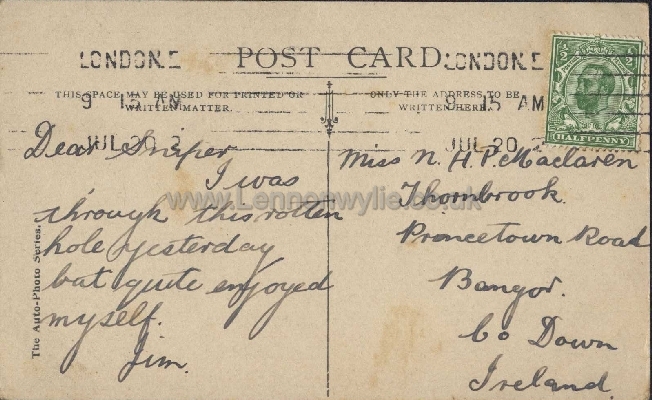 LONDON.E
POST CARD.
LONDON.E
THIS SPACE MAY BE USED FOR PRINTED OR
WRITTEN MATTER.
ONLY THE ADDRESS TO BE
WRITTEN HERE.
9 15 AM
9 15 AM
JUL 20
JUL 20
HALFPENNY
Dear Sniper
I was
through this rotten
hole yesterday
but quite enjoyed
myself.
Jim.
Miss N. H. P. Maclaren
Thornbrook
Proncetown Road
Bangor.
Co Down
Ireland.
The Auto-Photo Series.
www.Lennonwylie.co.uk